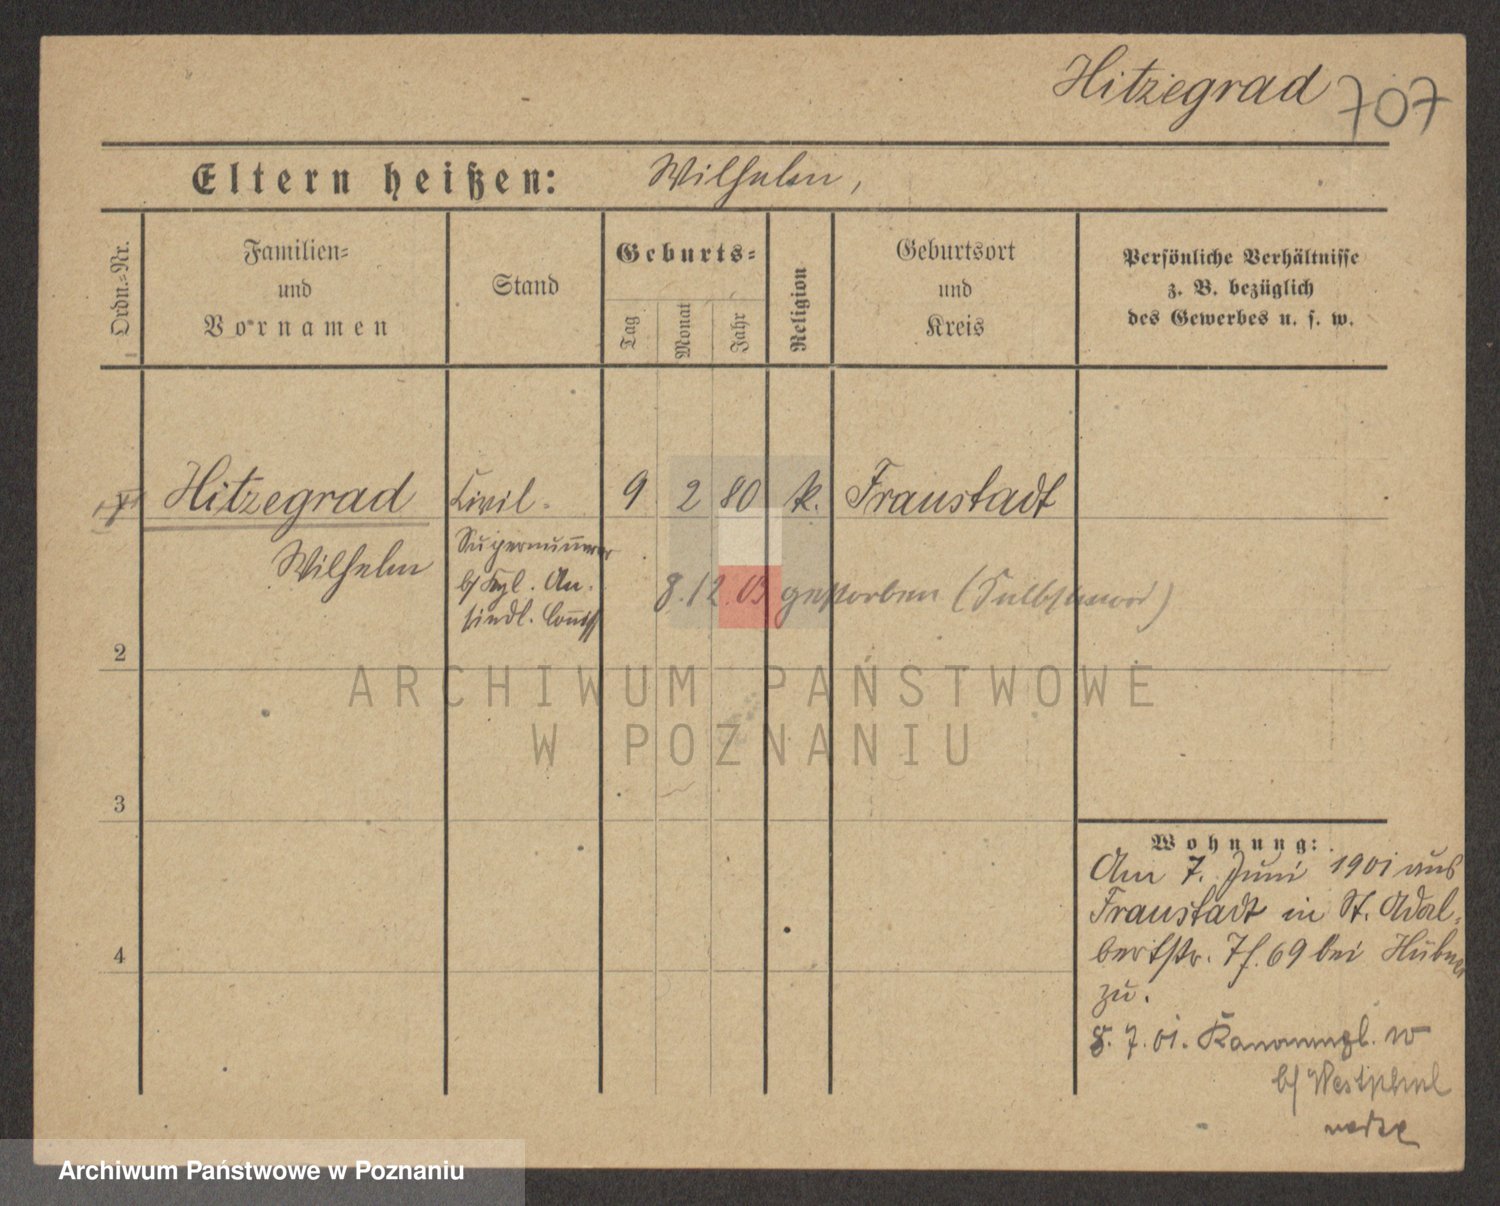 Hitzegrad 707
Eltern heißen: Wilhelm,
Ordn.-Nr.
Familien-
und
Vornamen
Stand
Geburts-
Tag
Monat
Jahr
Religion
Geburtsort
und
Kreis
Persönliche Verhältnisse
z. B. bezüglich
des Gewerbes u. s. w.
Hitzegrad Civil- 9 2 80 k. Fraustadt
Supernumerar
Wilhelm
b/ Kgl. An-
siedl. Com̄iss
8.12.03 gestorben (Selbstmord)
2
ARCHIWUM PAŃSTWOWE
W POZNANIU
3
Wohnung:
Am 7. Juni 1901 aus
Fraustadt in St. Adal-
bertstr. 7/8. 69 bei Hübner
4
zu.
8. 7. 01. Kanonenpl.
b/ Westphal
Archiwum Państwowe w Poznaniu